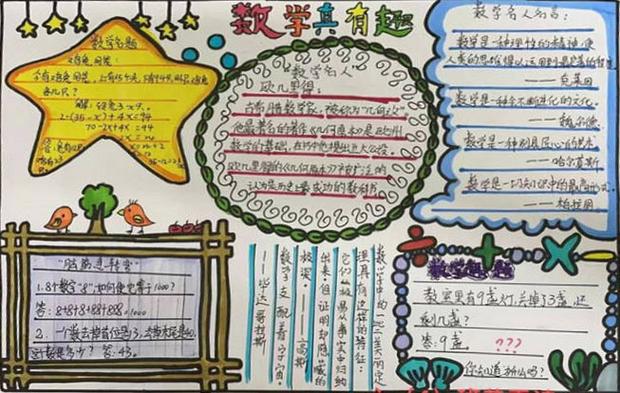 数学真有趣
数学名题
鸡兔同笼:
今有鸡兔同笼,上有35个头,下有94只脚,问鸡兔
各几只?
解:设兔子x只。
2×(35-x)+4x=94
70-2x+4x=94
"数学名人"
欧几里得:
古希腊数学家,被称为"几何之父"
他最著名的著作《几何原本》是欧洲
数学的基础,在书中他提出五大公设。
欧几里得的《几何原本》被广泛的
认为是历史上最成功的教科书。
数学名人名言:
数学是一种理性的精神,使
人类的思维得以运用到最完善的程度
——克莱因
数学是一种会不断进化的文化。
——魏尔德
数学是一种别具匠心的艺术
——哈尔莫斯
数学是一切知识中的最高形式。
——柏拉图
"脑筋急转弯"
1.8个数字"8"如何使它等于1000?
答:8+8+8+88+888=1000
2.一个数去掉首位是13,去掉末尾是40.
这个数是多少?答:43.
数学中的一些美丽定
理具有这样的特征:
它们极易从事实中归纳
出来,但证明却隐藏的
极深。——高斯
数字支配着宇宙。
——毕达哥拉斯
数学趣题
教室里有9盏灯,关掉了3盏,还
剩几盏?
答:9盏。 ???
你知道为什么吗?